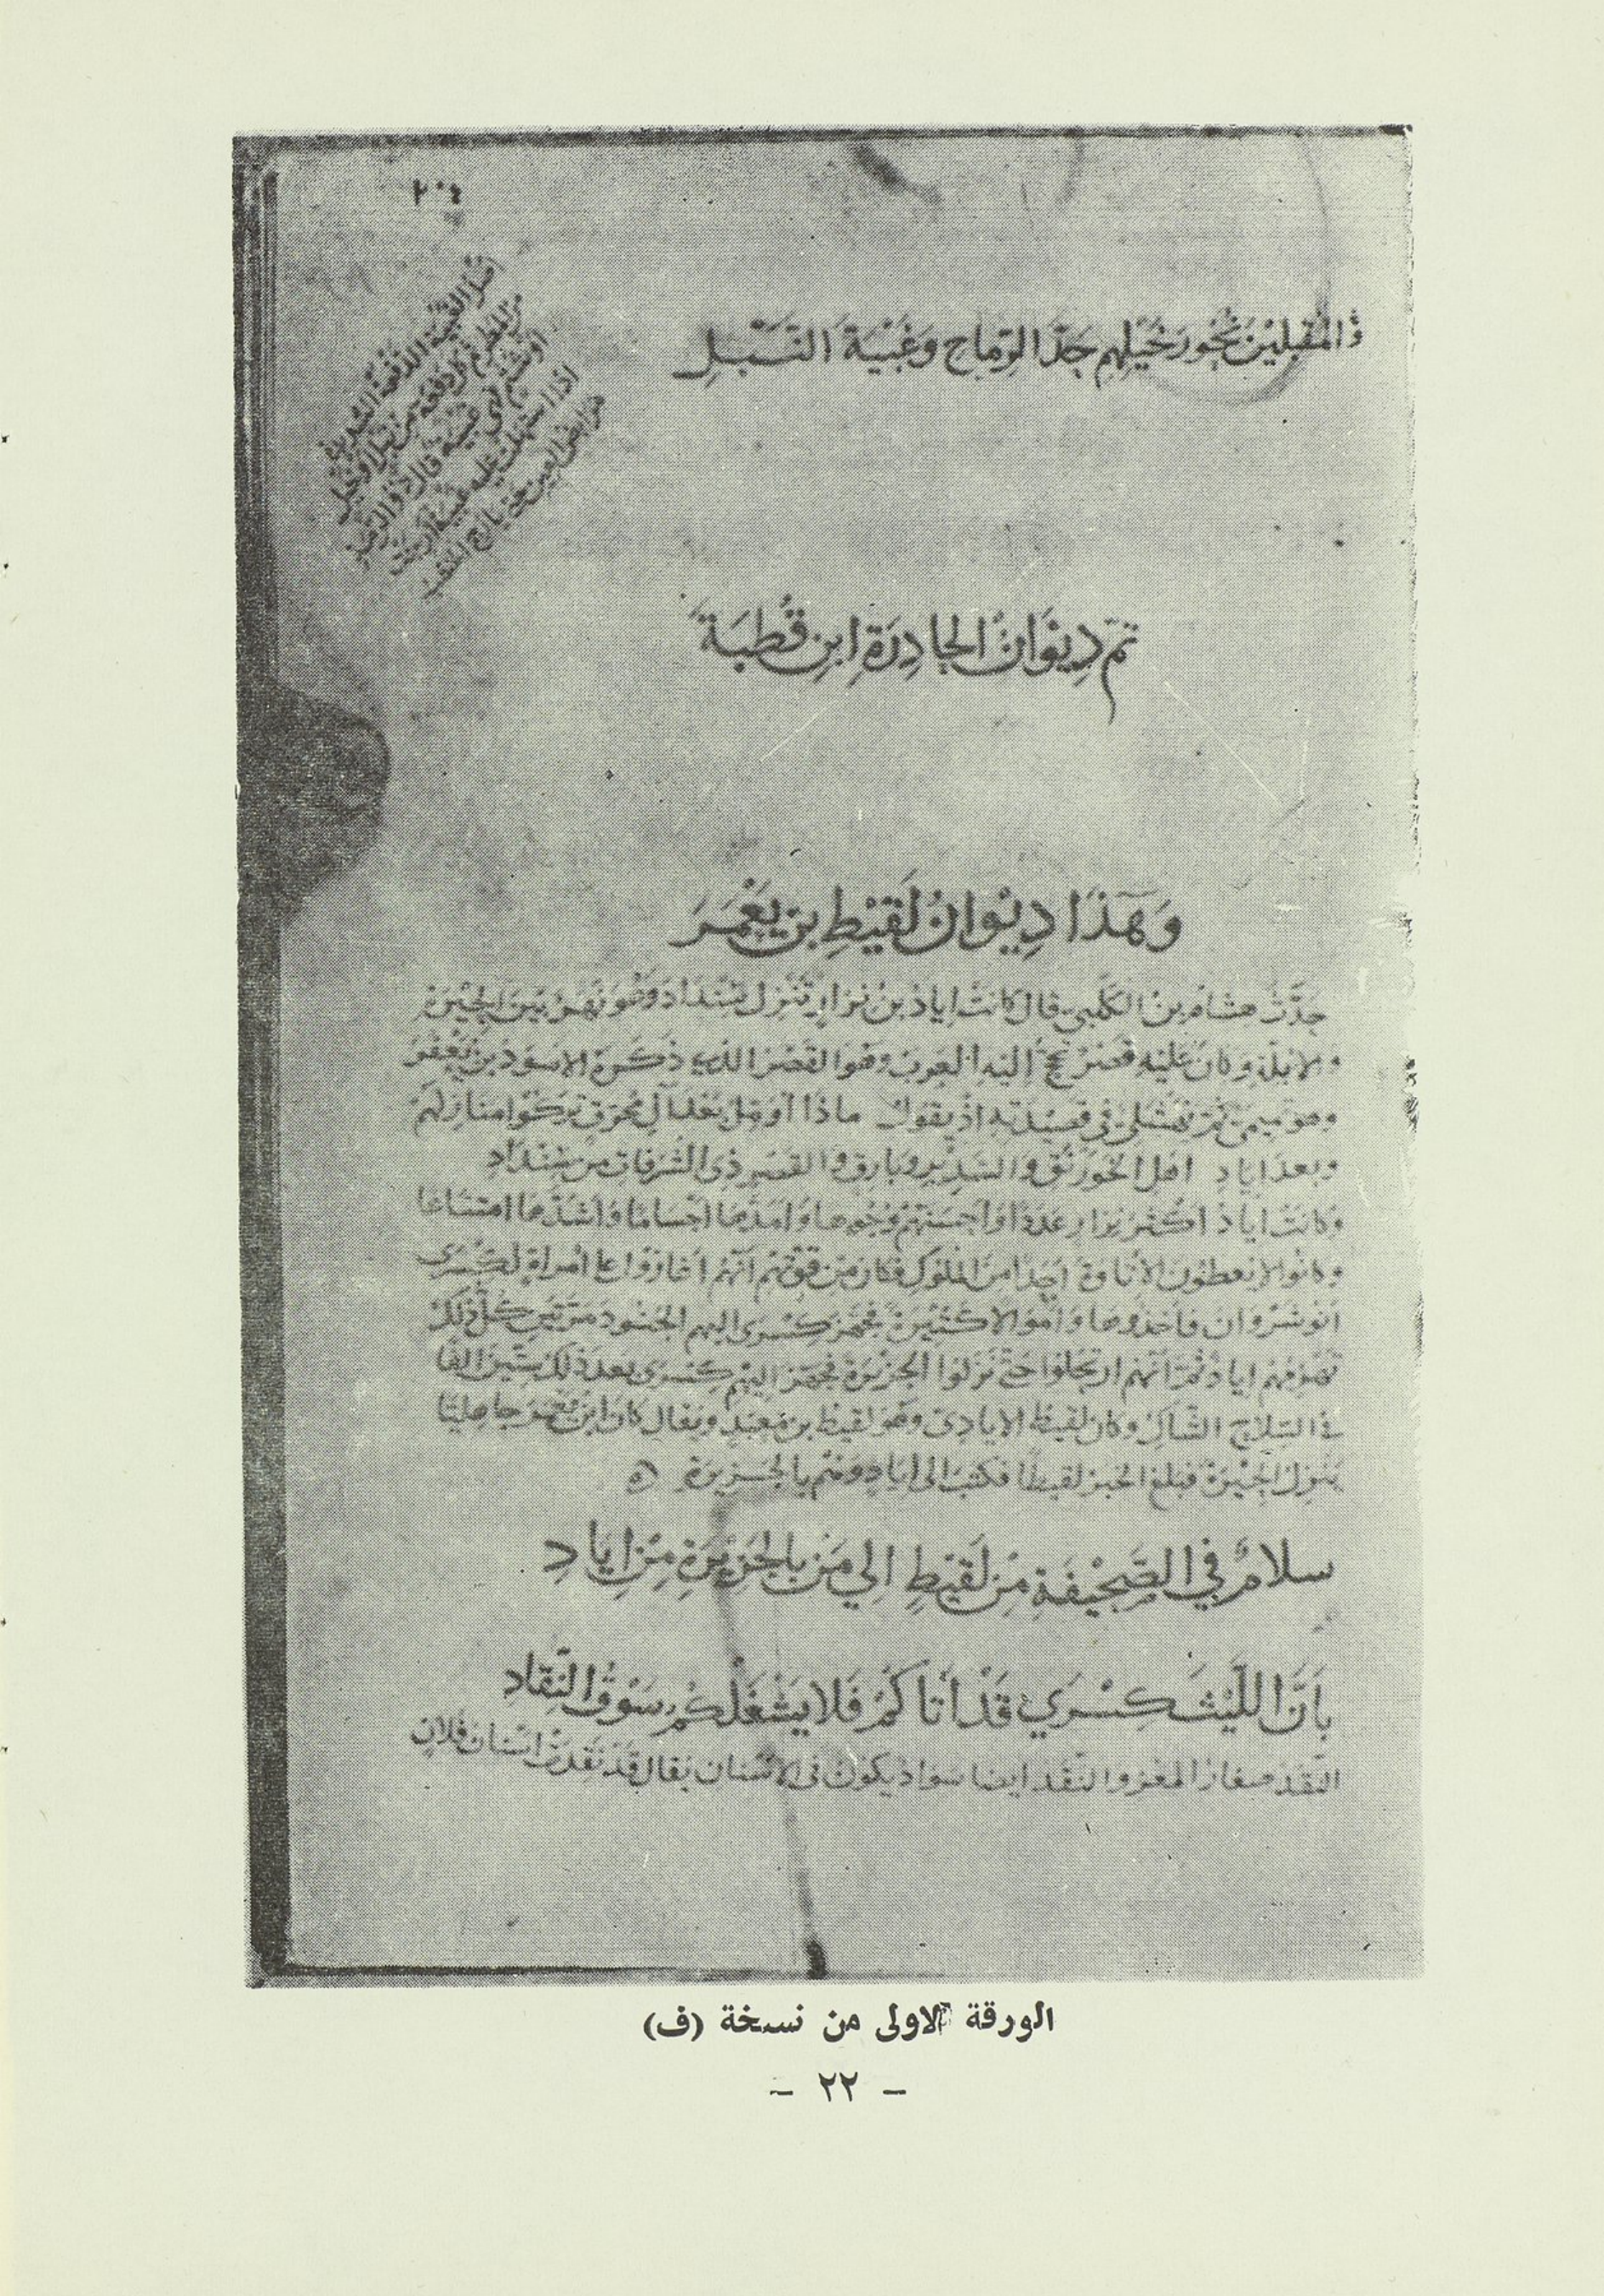 ٢٠٤
والمُقْبِلِيْنَ نُحُورَ خَيْلِهِم حَدَّ الرِّمَاحِ وَغَبْيَةَ النَّبْلِ
أصل الغبية الدفعة الشديدة
من المطر كل دفعة من نبل او خيل
قال ذو الرمة
اذا استهلت عليه غبية أرجت
مرابض العين حتى يأرج الخشب
تم دِيْوَانُ الحَادِرَةِ ابنِ قُطْبَةَ
وَهَذَا دِيْوانُ لَقِيْطِ بن يَعْمَرَ
حَدَّثَ هشام بنُ الكَلْبِي قال كانَتْ اياد بنُ نزارٍ تَنْزِل سِنْدَادَ وَهُوَ نَهْرٌ بَيْنَ الحِيْرَةِ
والابلّة وكانَ عَلَيْهِ قصْرٌ تحجّ إليه العرب وهو القَصْر الذي ذكَرَهُ الاسوَدُ بن يَعْفُرَ
وهو تميمى ثم نهشلىّ في قصيدته اذ يقول ماذا أؤمّل بَعْدَ آلِ مُحَرّقٍ تركوا منازلهم
وبعدَ ايادِ اهل الخَوَرْنَقِ والسَّدِيْرِ وبارقٍ والقصرِ ذي الشُرفاتِ من سِنْدَادِ
وَكانَتْ ايادٌ أكثرَ نِزارٍ عَدَدًا وَأَحْسَنَهُمْ وُجُوهًا وَأَمَدَّهَا أَجْسَامًا وَأَشَدَّهَا امتِنَاعًا
وكانُوا لا يُعطُون الإتاوةَ أحَدًا مِنَ المُلُوكِ فكانَ مِن قوَّتِهِم أَنَّهُم أَغَارُوا على امْرأةٍ لكِسْرى
انُوشَرْوان فأخذُوها وَأَموَالا كَثِيْرَةً فجهّزَ كِسْرى إليهم الجنُودَ مَرَّتَيْنِ كلّ ذلِكَ
تهزمهم اياد ثُمَّ انّهم ارتَحَلوا حَتّى نَزَلوا الجَزيْرَةَ فجهّزَ اليهِم كِسْرى بَعدَ ذلِكَ سِتّينَ الفًا
في السّلاح الشّاكِ وكان لقيط الايادِى وَهوَ لقيط بن مَعْبَدٍ ويقال كانَ ابنُ يَعْمَرَ جاهليًّا
يَنْزِلُ الحِيْرَةَ فبلغَ الخبَرُ لقيطًا فكتبَ الى ايَادٍ وهُم بِالجَزيرَةِ
سلامٌ في الصَّحِيْفَةِ مِنْ لَقِيْطٍ الي مَن بالجَزِيْرَةِ مِنْ اِيَادِ
بِأَنَّ اللّيْثَ كِسْرَي قَدْ أَتَاكُمْ فَلا يَشْغَلْكُمُ سَوْقُ النِّقَادِ
النَقَدُ صغار المعز والنقَد ايضا سواد يكون في الاسْنان يقال قد نَقِدَتْ اسْنانُ فُلانٍ
الورقة الاولى من نسخة (ف)
- ٢٢ -